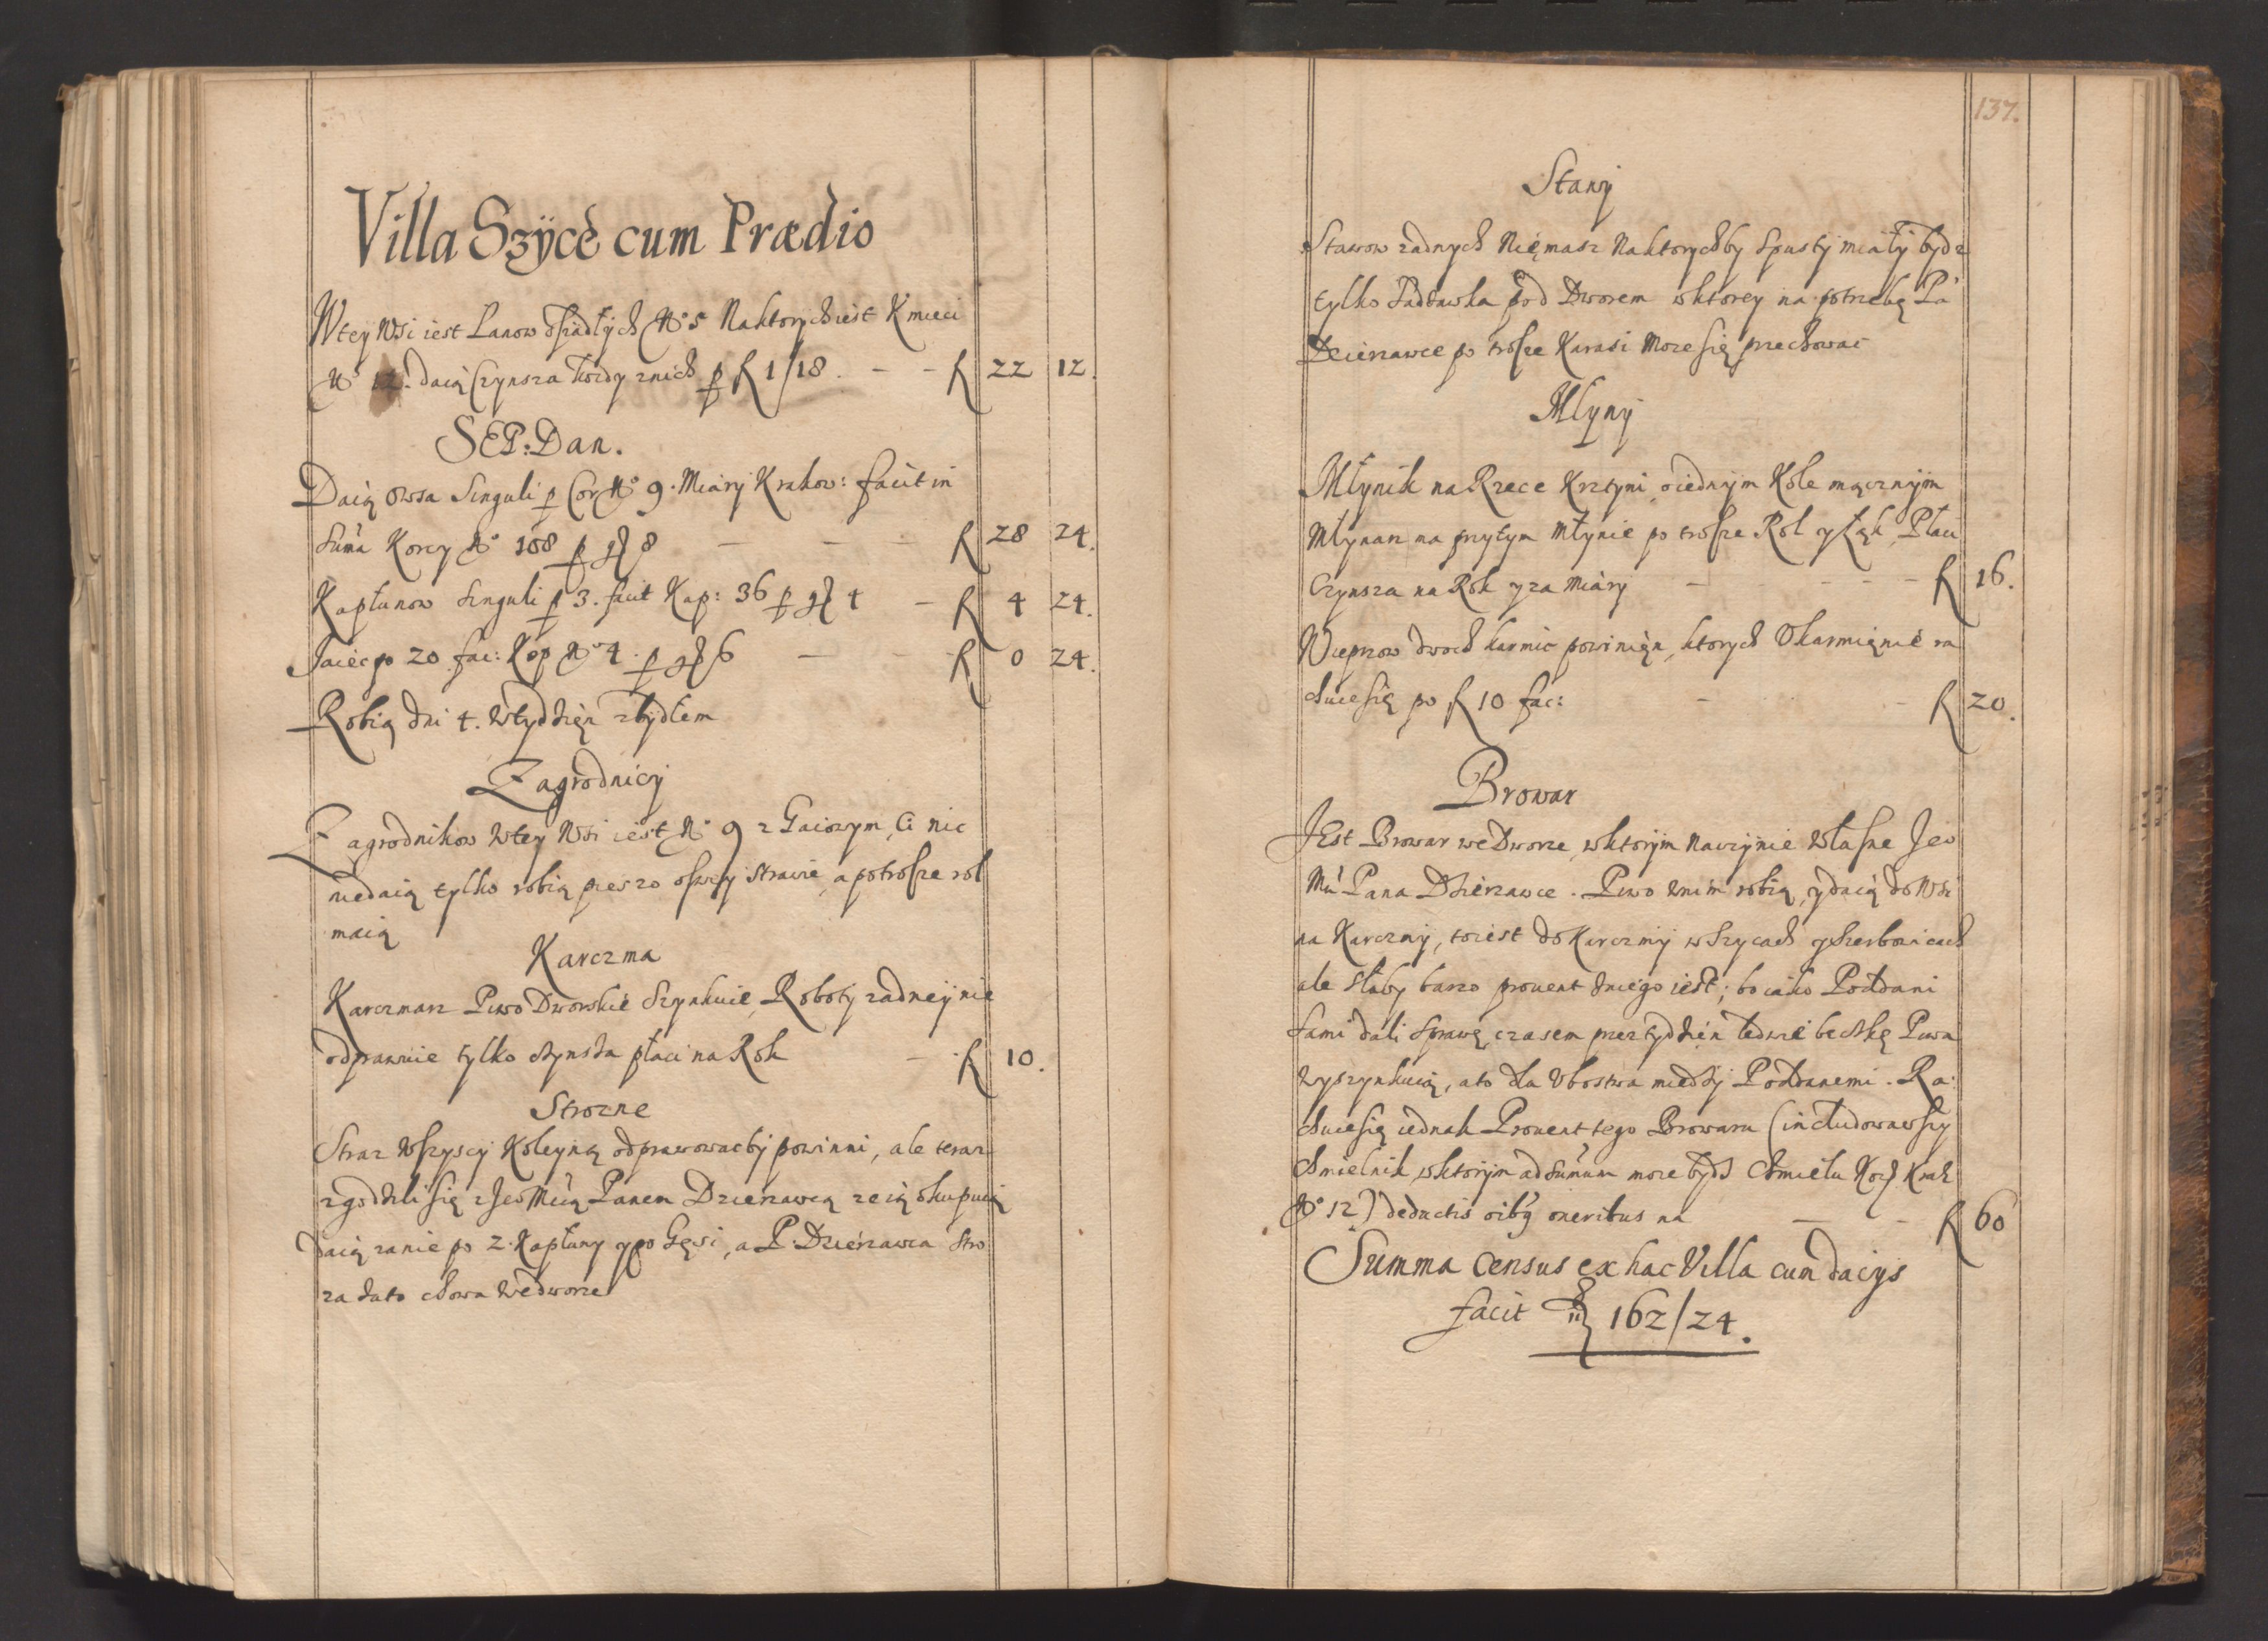 Villa Szÿce cum Prædio
Wtey Wsi iest Lanow osiadłych No 5 Naktorych iest Kmieci
No 12. daią Czynsza kozdy znich p f 1/18. - - f 22 12.
SEP: Dan.
Daią Owsa Singuli p Cor No 9. Miary Krakow: facit in
Suma Korcy No 108 p gr 8 — — — f 28 24.
Kapłunow Singuli p 3. facit Kap: 36 p gr 4 — f 4 24.
Jaiec po 20 fac: Kop No 4. p gr 6 — — f 0 24.
Robią dni 4. wtydzięn zbydłem
Zagrodnicy
Zagrodnikow wtey Wsi iest No 9 z Gaiowym, Ci nic
niedaią tylko robią pieszo oswey Strawie, a potrosze rol
maią
Karczma
Karczmarz Piwo Dworskie Szynkuie, Roboty zadney nie
odprawuie tylko czynsza płaci na Rok — f 10.
Strozne
Straz Wszyscy Koleyną odprawowacby powinni, ale teraz
zgodzili się z Jeo Mcią Panem Dzierzawcą ze ią okupuią
daią zanie po 2. Kapłuny ypo Gęsi, a P. Dzierzawca Stro
za zato chowa wedworze
137.
Stawy
Stawow zadnych Niemasz Naktorychby Spusty miały bydz
tylko Sadzawka pod Dworem wktorey na potrzebę Pa
Dzierzawce po trosze Karasi Moze się przechować
Młyny
Młynik na Rzece Krztyni, oiednym Kole mącznym
Młynarz ma przytym Młynie po trosze Rol y Łąk, Płaci
Czynsza na Rok y za Miary — - - - f 16.
Wieprzow dwoch karmic powinięn, ktorych Okarmięnie ra
chuie się po f 10 fac: - - f 20.
Browar
JEst Browar we Dworze, wktorym Naczynie Własne Jeo
Mci Pana Dzierzawce. Piwo wnim robią, y daią do Wsi
na Karczmy, toiest do Karczmy w Szycach y Sierbowicach
ale słaby barzo prouent zniego iest; bo iako Poddani
Sami dali Sprawę, czasem przez tydzień ledwie beczkę Piwa
wyszynkuią, a to dla Ubostwa miedzy Poddanemi. Ra:
chuie się iednak Prouent tego Browaru (includowawszy
Chmielnik, wktorym ad sumum moze bydz Chmielu Korcy Krak
No 12) deductis oibus oneribus na — - f 60
Summa Census ex hac Villa cum dacys
facit f 162/24.